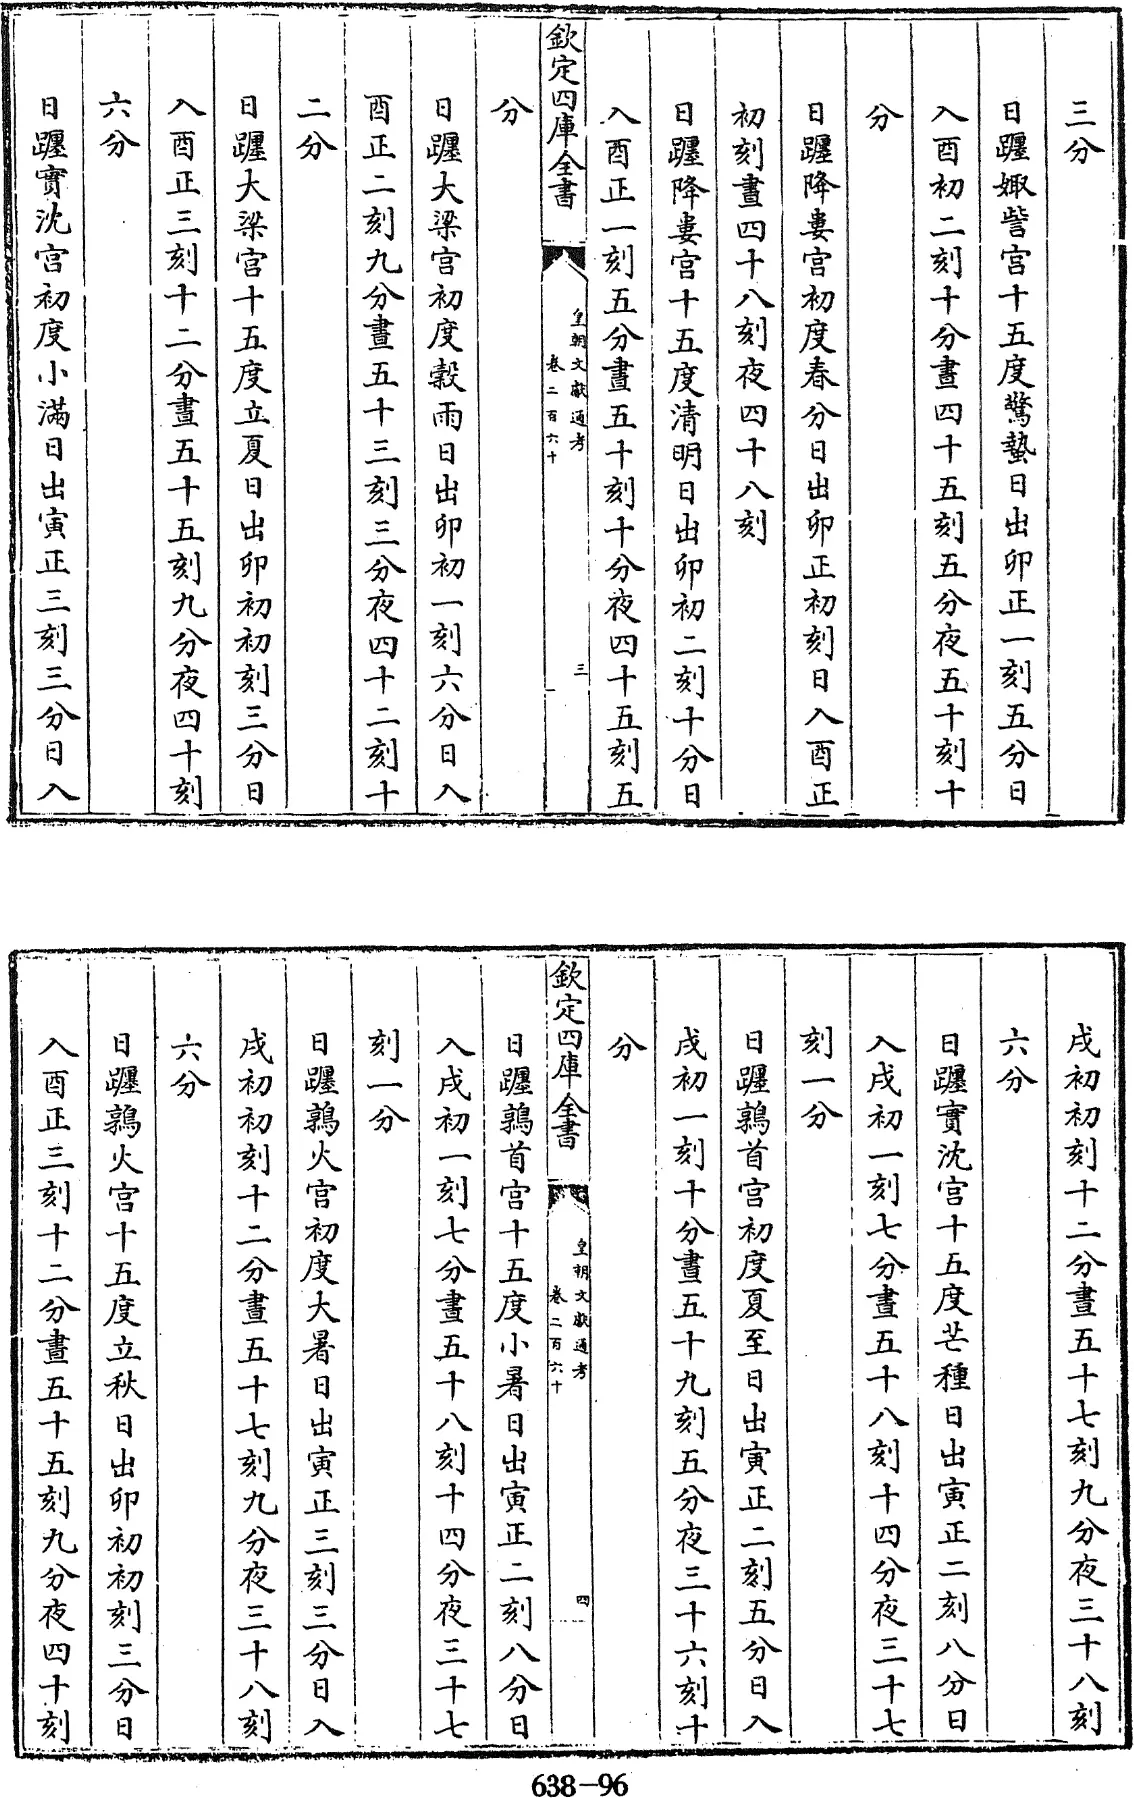 三分
日躔娵訾宫十五度驚蟄日出卯正一刻五分日
入酉初二刻十分晝四十五刻五分夜五十刻十
分
日躔降婁宫初度春分日出卯正初刻日入酉正
初刻晝四十八刻夜四十八刻
日躔降婁宫十五度清明日出卯初二刻十分日
入酉正一刻五分晝五十刻十分夜四十五刻五
欽定四庫全書
皇朝文獻通考
卷二百六十
三
分
日躔大梁宫初度穀雨日出卯初一刻六分日入
酉正二刻九分晝五十三刻三分夜四十二刻十
二分
日躔大梁宫十五度立夏日出卯初初刻三分日
入酉正三刻十二分晝五十五刻九分夜四十刻
六分
日躔實沈宫初度小滿日出寅正三刻三分日入
戌初初刻十二分晝五十七刻九分夜三十八刻
六分
日躔實沈宫十五度芒種日出寅正二刻八分日
入戌初一刻七分晝五十八刻十四分夜三十七
刻一分
日躔鶉首宫初度夏至日出寅正二刻五分日入
戌初一刻十分晝五十九刻五分夜三十六刻十
分
欽定四庫全書
皇朝文獻通考
卷二百六十
四
日躔鶉首宫十五度小暑日出寅正二刻八分日
入戌初一刻七分晝五十八刻十四分夜三十七
刻一分
日躔鶉火宫初度大暑日出寅正三刻三分日入
戌初初刻十二分晝五十七刻九分夜三十八刻
六分
日躔鶉火宫十五度立秋日出卯初初刻三分日
入酉正三刻十二分晝五十五刻九分夜四十刻
638-96